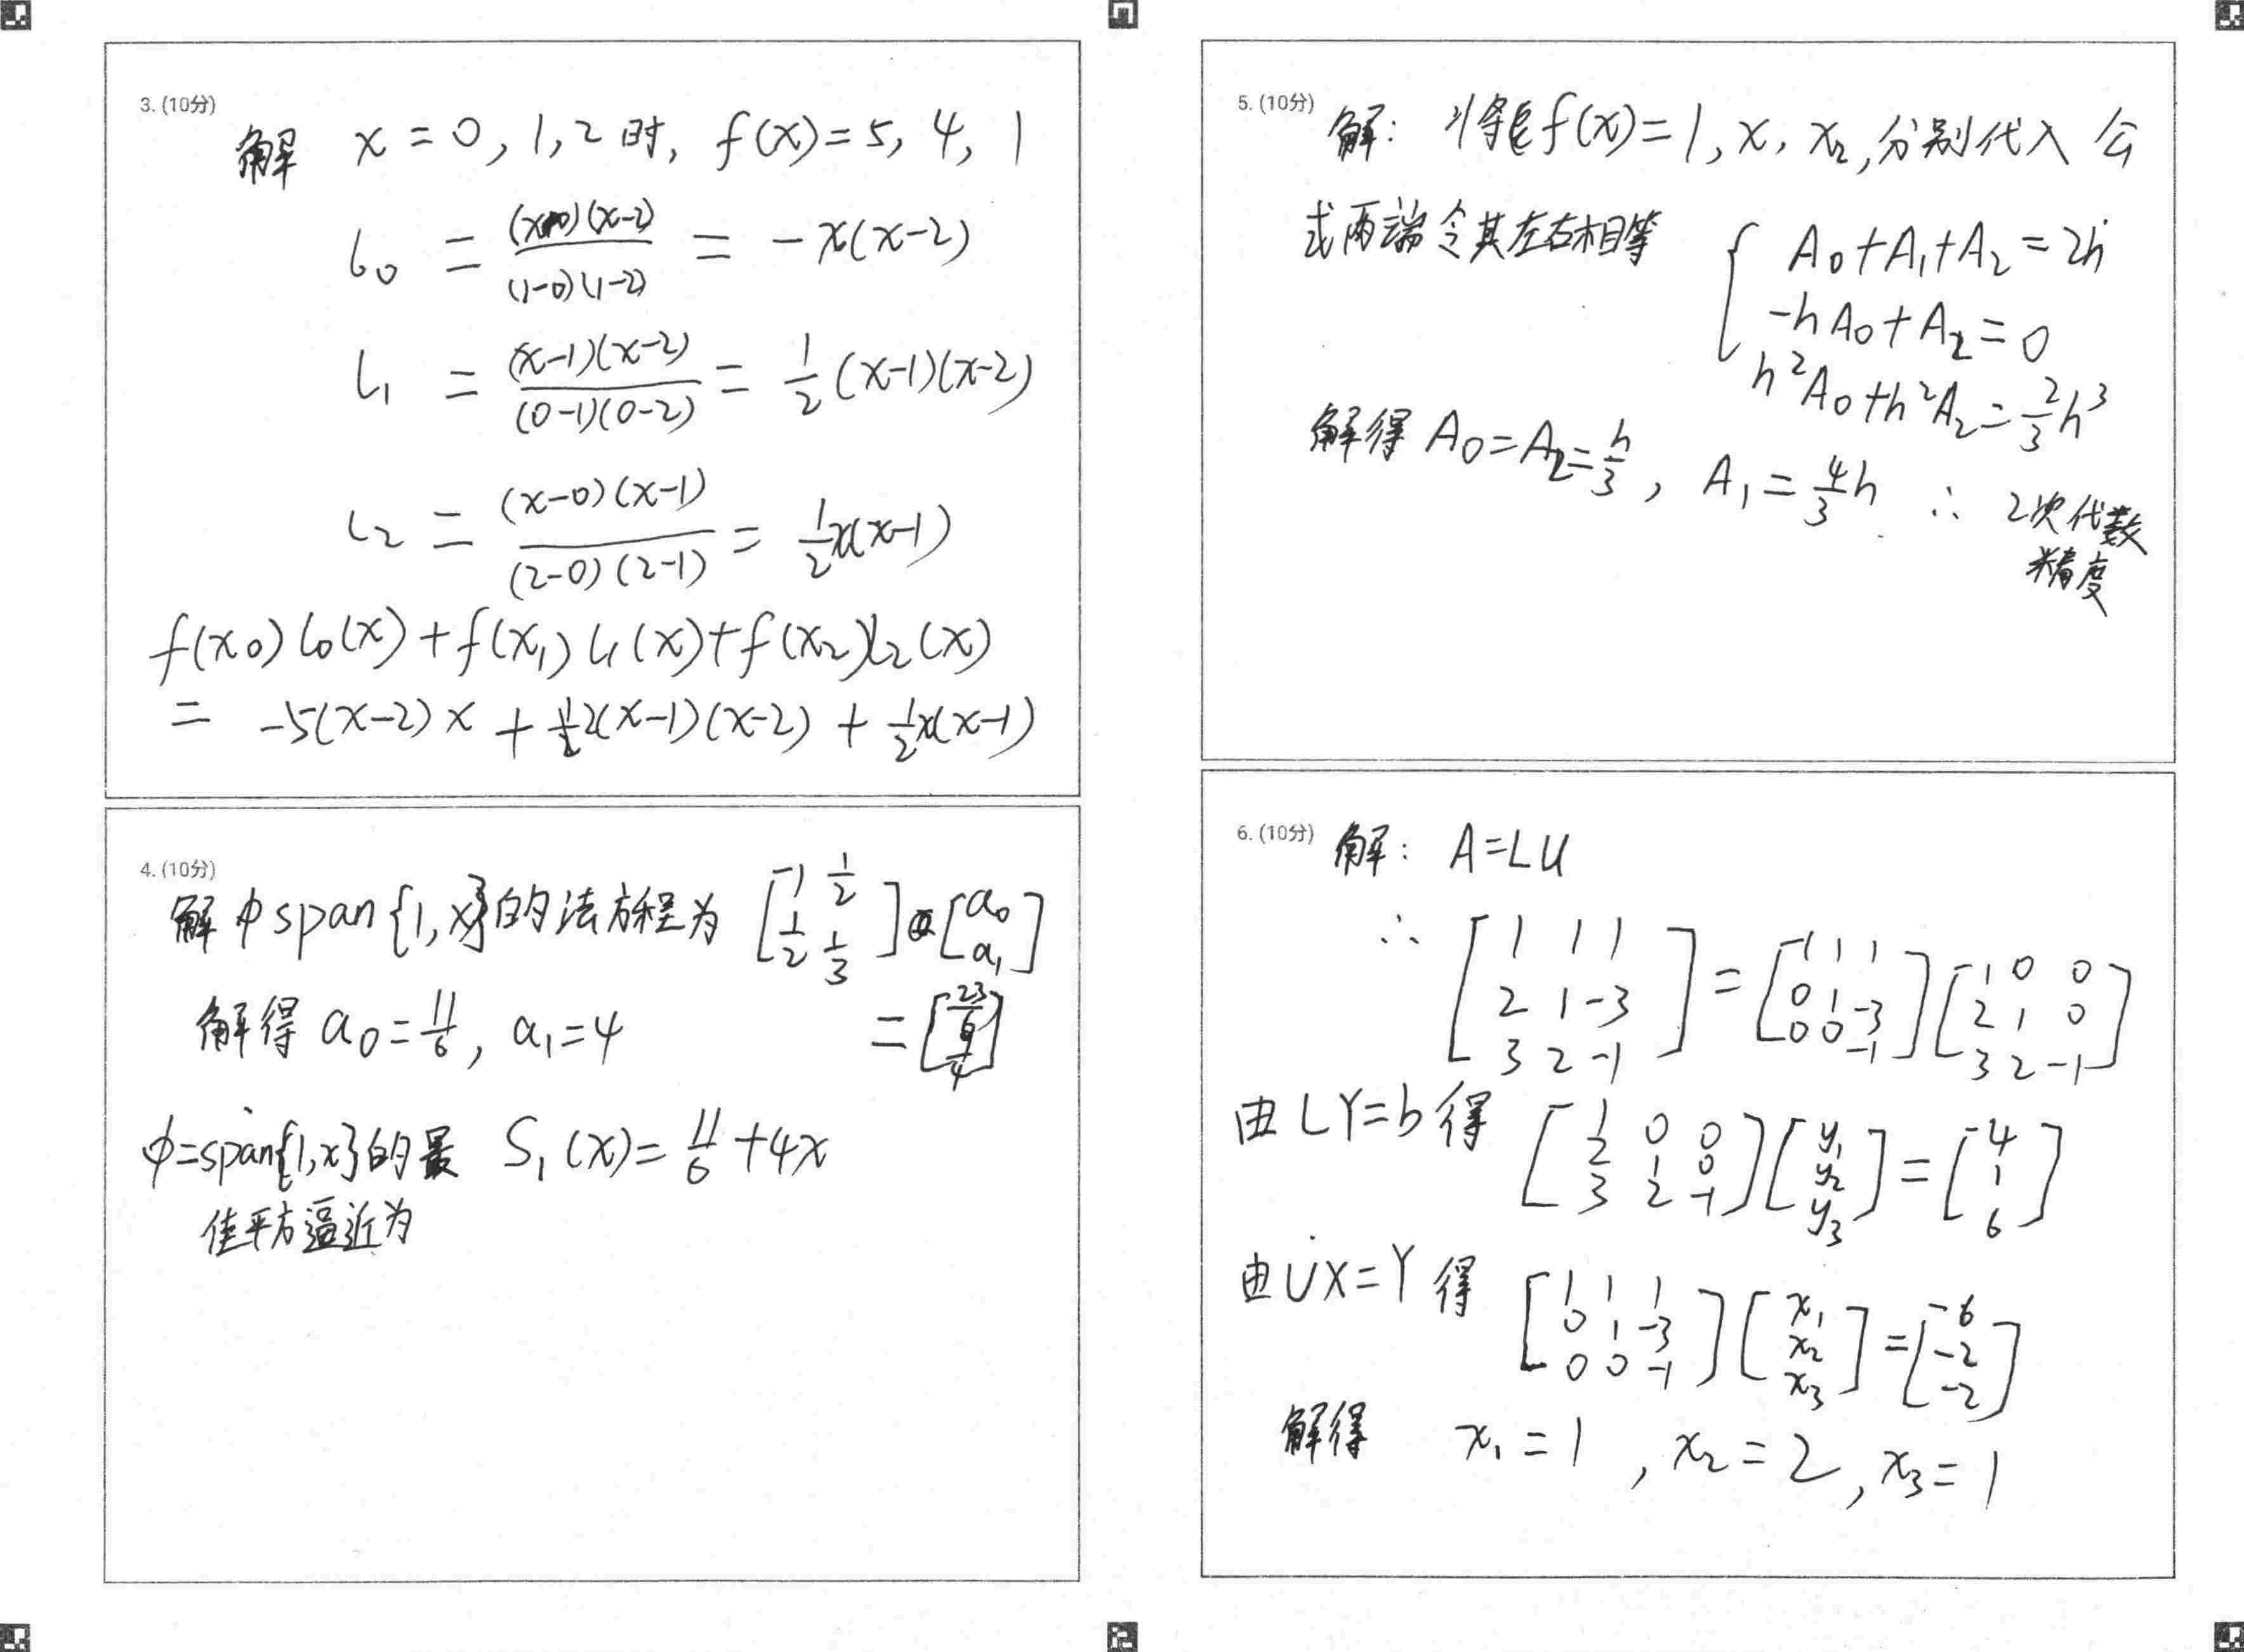 3. (10分)
解 x = 0, 1, 2 时, f(x) = 5, 4, 1
l₀ = (x-0)(x-2) / (1-0)(1-2) = -x(x-2)
l₁ = (x-1)(x-2) / (0-1)(0-2) = 1/2 (x-1)(x-2)
l₂ = (x-0)(x-1) / (2-0)(2-1) = 1/2 x(x-1)
f(x₀) l₀(x) + f(x₁) l₁(x) + f(x₂) l₂(x)
= -5(x-2)x + 2(x-1)(x-2) + 1/2 x(x-1)
4. (10分)
解 φ span {1, x} 的法方程为 [1 1/2; 1/2 1/3] [a₀; a₁]
解得 a₀ = 11/6, a₁ = 4 = [23/6; 9/4]
φ = span{1, x} 的最 S₁(x) = 11/6 + 4x
佳平方逼近为
5. (10分)
解: 将 f(x) = 1, x, x₂, 分别代入 公
式两端令其左右相等 { A₀ + A₁ + A₂ = 2h
-h A₀ + A₂ = 0
h² A₀ + h² A₂ = 2/3 h³
解得 A₀ = A₂ = h/3, A₁ = 4/3 h ∴ 2次代数
精度
6. (10分)
解: A = LU
∴ [1 1 1; 2 1 -3; 3 2 -1] = [1 1 1; 0 1 -3; 0 0 -1] [1 0 0; 2 1 0; 3 2 -1]
由 LY = b 得 [1 0 0; 2 1 0; 3 2 -1] [y₁; y₂; y₃] = [4; 1; 6]
由 UX = Y 得 [1 1 1; 0 1 -3; 0 0 -1] [x₁; x₂; x₃] = [6; -2; -2]
解得 x₁ = 1, x₂ = 2, x₃ = 1